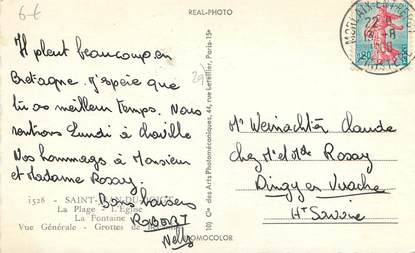 6-€
REAL-PHOTO
Il pleut beaucoup en
Bretagne. J'espère que
tu as meilleur temps. Nous
rentrons Lundi à Chaville
Nos hommages à Monsieur
et Madame Rosay.
Bons baisers
ROBERT
Nelly
1528 - SAINT-JEAN-DU-DOIGT
La Plage - L'Eglise
La Fontaine
Vue Générale - Grottes de
ROMOCOLOR
10) Cie des Arts Photomécaniques, 44, rue Letellier, Paris-15e
MORLAIX
Mr Weinachter Claude
chez Mr et Mde Rosay
Dingy en Vuache
Hte Savoie